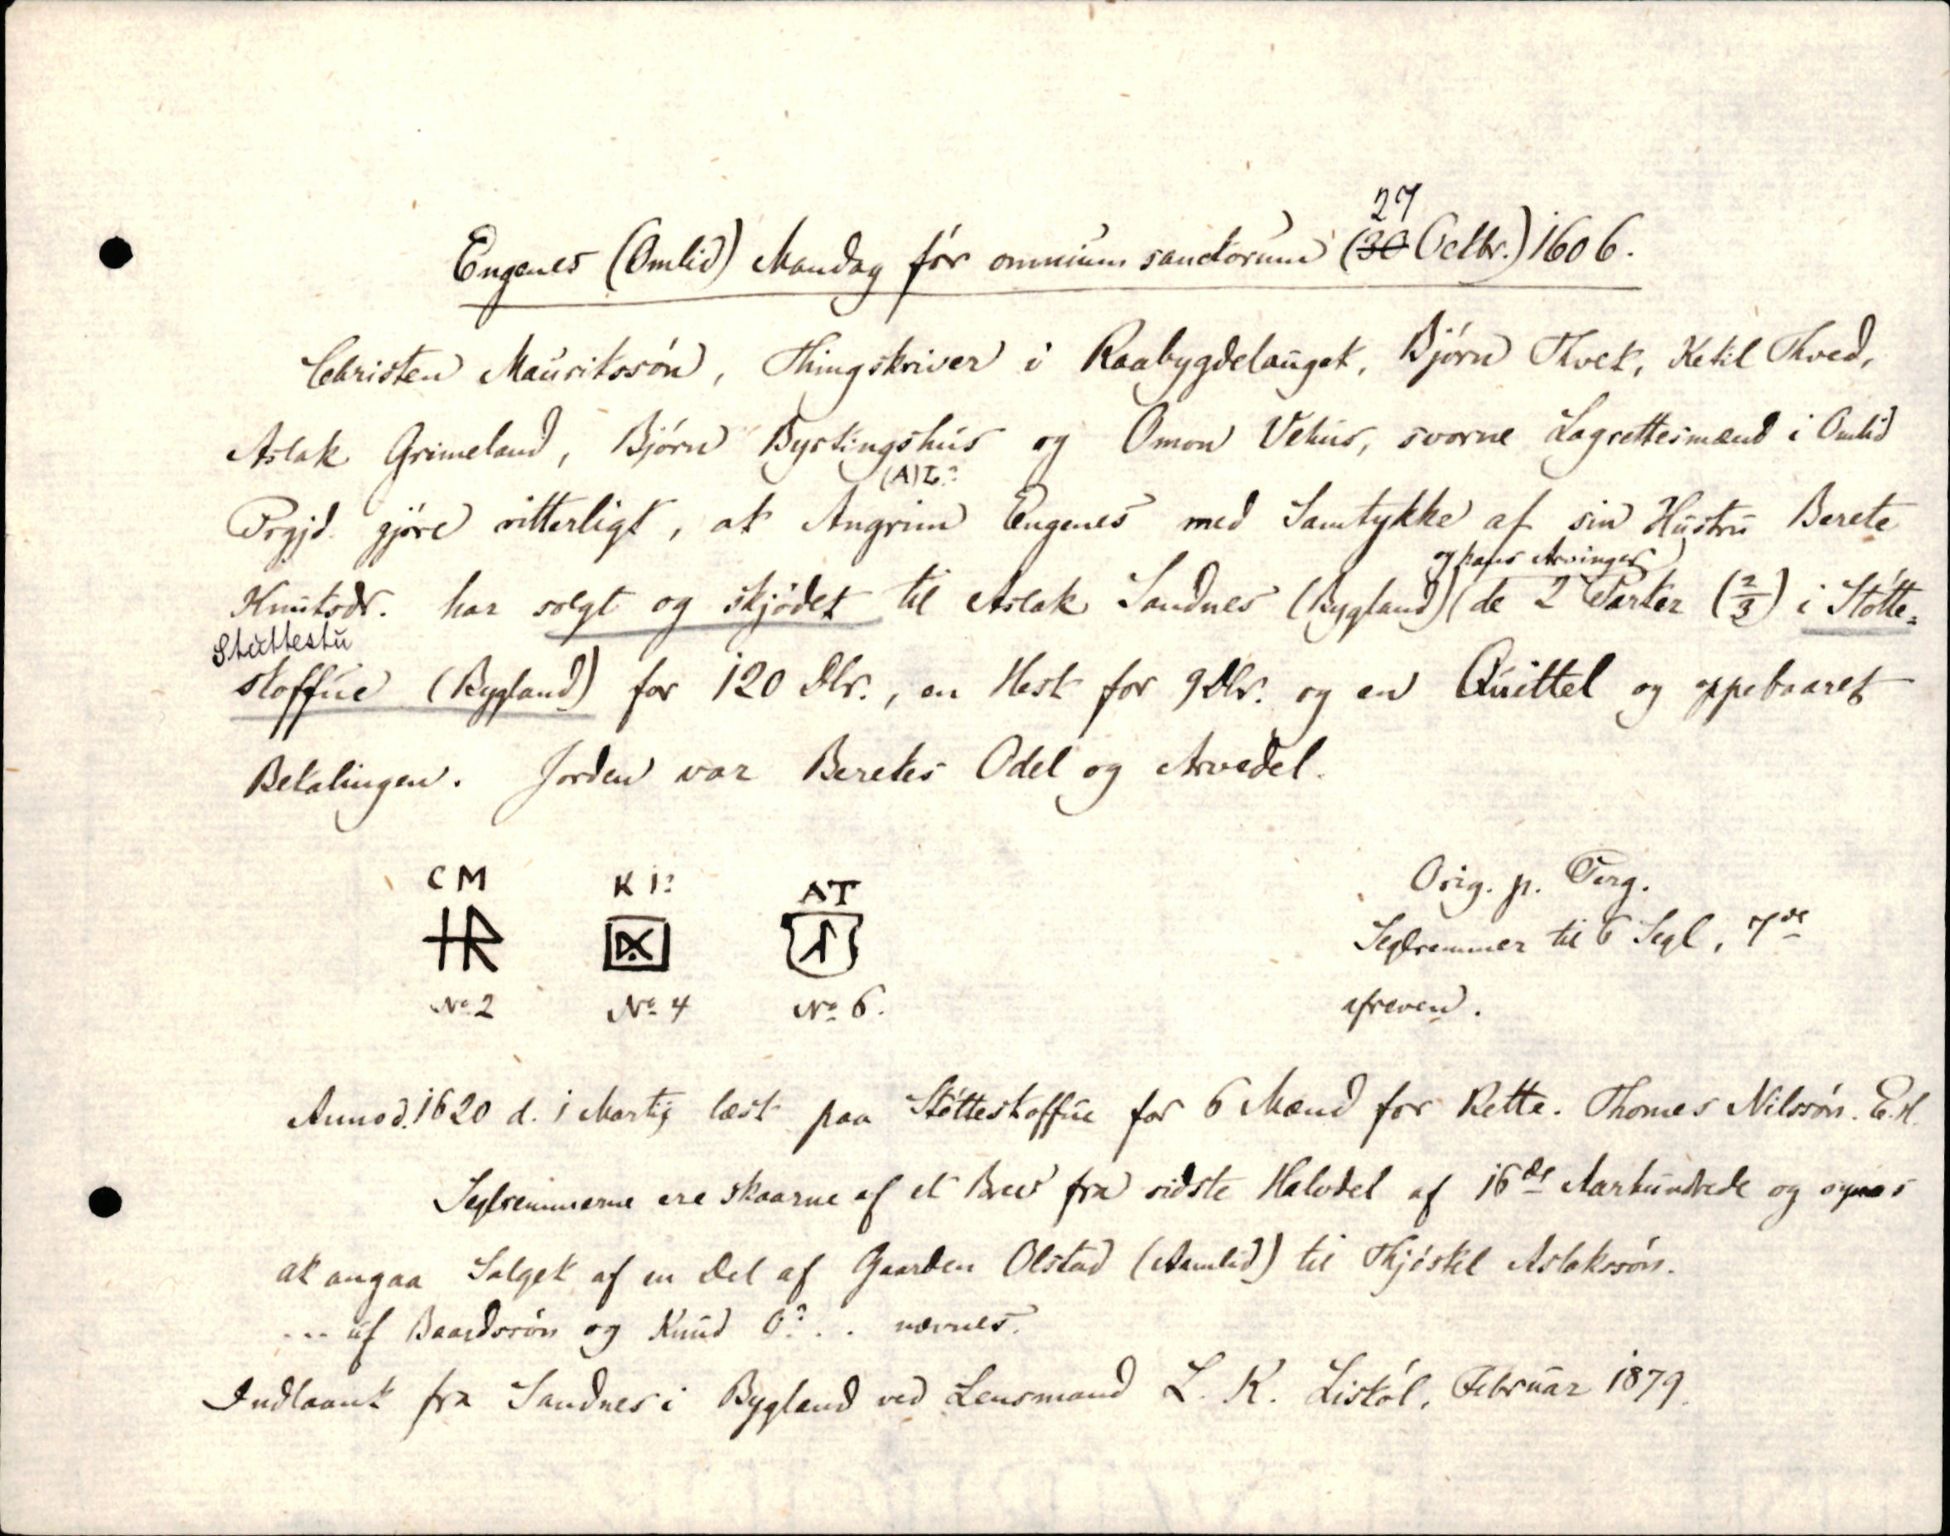 27
Engenes (Omlid) Mandag før omnium sanctorum (30 Octbr.) 1606.
Christen Mauritssøn, Thingskriver i Raabygdelauget, Bjørn Thvet, Ketil Thved,
Aslak Grimeland, Bjørn Bystingshus og Omon Vehus, svorne Lagrettesmænd i Omlid
(A)L?
Prgjd. gjøre vitterligt, at Angrim Engenes med Samtykke af sin Hustru Berete
og hans Arvinger
Knutsdr. har solgt og skjødet til Aslak Sandnes (Bygland) (de 2 Parter (2/3) i Støtte=
Stuttestu
stoffue (Bygland) for 120 Dlr., en Hest for 9 Dlr. og en Quittel og oppebaaret
Betalingen. Jorden var Beretes Odel og Arvedel.
CM K I? AT
HR
No 2 No 4 No 6.
Orig. p. Perg.
Seglremmer til 6 Segl, 7de
afreven.
Anno d. 1620 d. 1 Martij læst paa Støttestoffue for 6 Mænd for Rette. Thomes Nilssøn. E.H.
Seglremmerne ere skaarne af et Brev fra sidste Halvdel af 16de Aarhundrede og synes
at angaa Salget af en Del af Gaarden Olstad (Aamlid) til Thjøstel Aslakssøn.
... uf Baardssøn og Knud O? .. nævnes.
Indlaant fra Sandnes i Bygland ved Lensmand L. K. Listøl, Februar 1879.